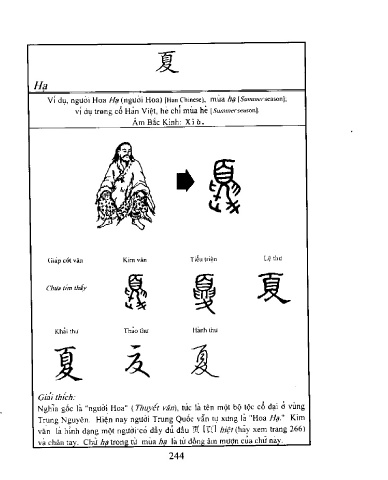 夏
Hạ
Ví dụ, người Hoa Hạ (người Hoa) [Han Chinese], mùa hạ [Summer season],
ví dụ trong cổ Hán Việt, hè chỉ mùa hè [Summer season].
Âm Bắc Kinh: Xià.
Giáp cốt văn Kim văn Tiểu triện Lệ thư
Chưa tìm thấy 夏
Khải thư Thảo thư Hành thư
夏 夏 夏
Giải thích:
Nghĩa gốc là "người Hoa" (Thuyết văn), tức là tên một bộ tộc cổ đại ở vùng
Trung Nguyên. Hiện nay người Trung Quốc vẫn tự xưng là "Hoa Hạ." Kim
văn là hình dạng một người có đầy đủ đầu 頁 hiệt (hãy xem trang 266)
và chân tay. Chữ hạ trong từ mùa hạ là từ đồng âm mượn của chữ này.
244